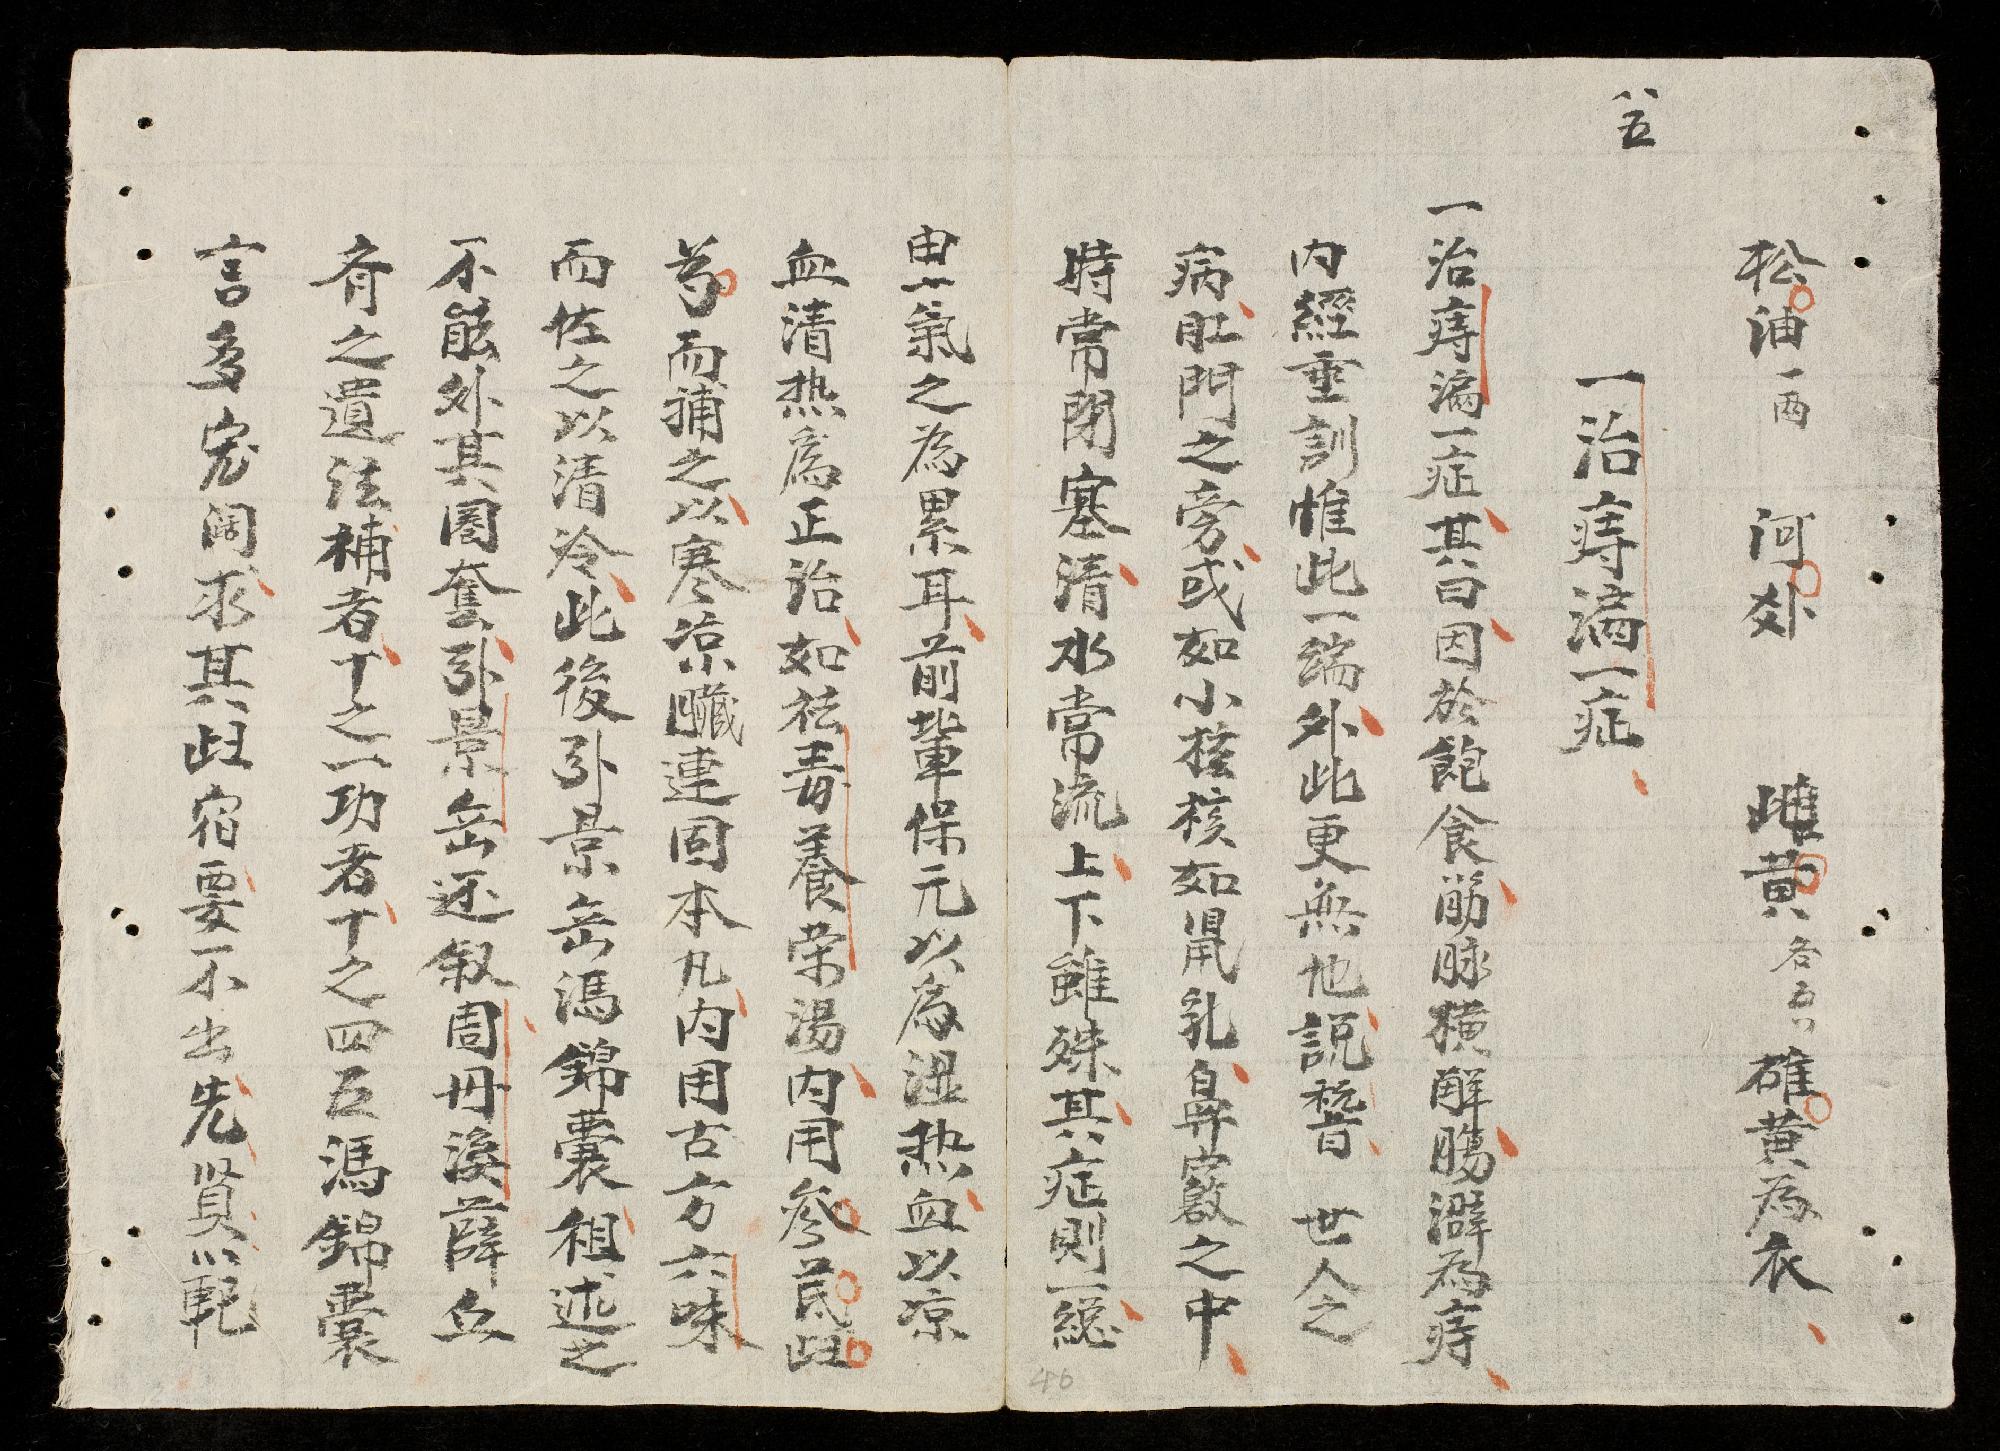 八五
松油一両 河䣭 雌黄各五 雄黄為衣
一治痔漏一症
一治痔漏一症其曰因於飽食筋脉横解腸澼為痔
内經垂訓惟此一端外此更無他説 世人之
病肛門之旁或如小核核如鼠乳鼻竅之中
時常閉塞清水常流上下雖殊其症則一総
由氣之為累耳前輩保元以為湿热血以凉
血清热為正治如祛毒養荣湯内用參芪歸
芍而補之以寒凉臟連固本凡内用古方六味
而佐之以清冷此後引景岳馮錦囊祖述之
不能外其圏套引景岳还叙周丹溪薛立
斎之遺法補者十之一功者十之四五馮錦囊
言多宏闊求其歸宿要不出先賢範
46